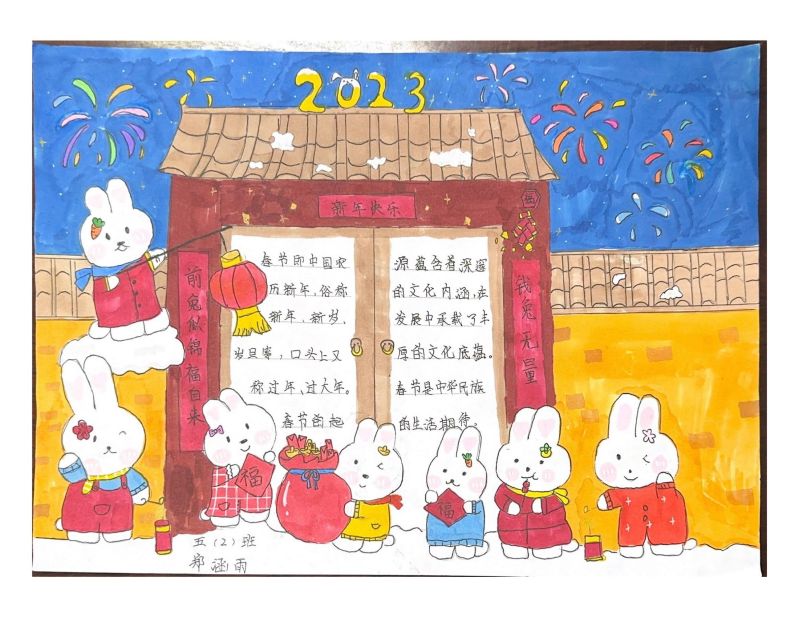 2023
新年快乐
前兔似锦福自来
钱兔无量
春节即中国农
历新年，俗称
新年、新岁、
岁旦等，口头上又
称过年、过大年。
春节的起
源蕴含着深邃
的文化内涵，在
发展中承载了丰
厚的文化底蕴。
春节是中华民族
的生活期待。
福
福
五（2）班
郑涵雨